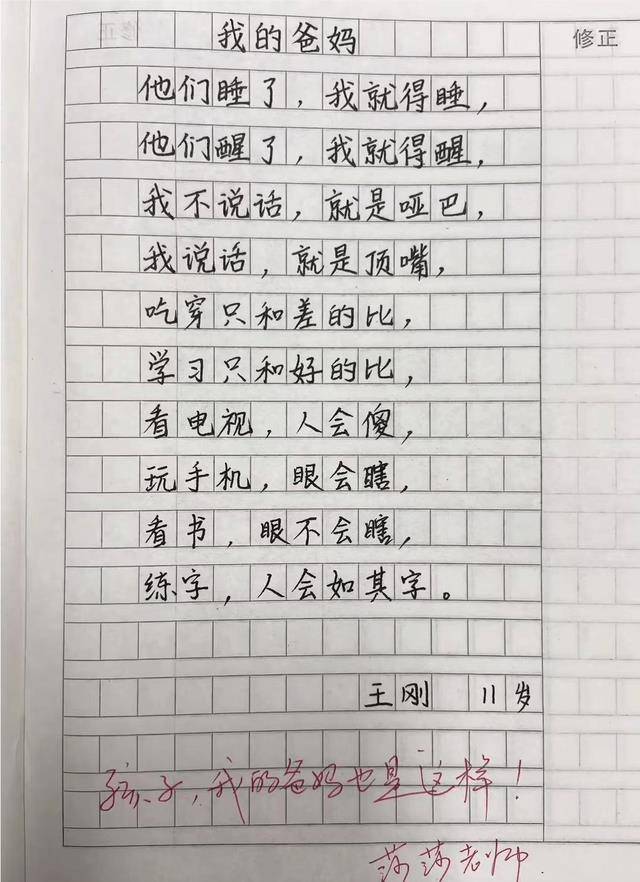 我的爸妈
修正
他们睡了，我就得睡，
他们醒了，我就得醒，
我不说话，就是哑巴，
我说话，就是顶嘴，
吃穿只和差的比，
学习只和好的比，
看电视，人会傻，
玩手机，眼会瞎，
看书，眼不会瞎，
练字，人会如其字。
王刚 11岁
孩子，我的爸妈也是这样！
莎莎老师